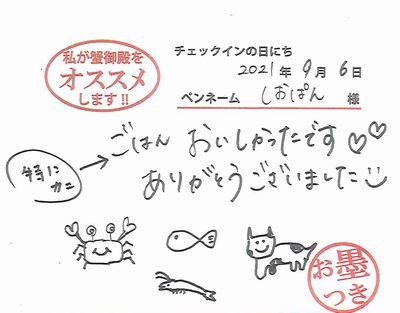 私が蟹御殿を
オススメ
します!!
チェックインの日にち
2021年9月6日
ペンネーム しおぱん 様
特に
カニ
ごはん おいしかったです♡♡
ありがとうございました
お墨
つき